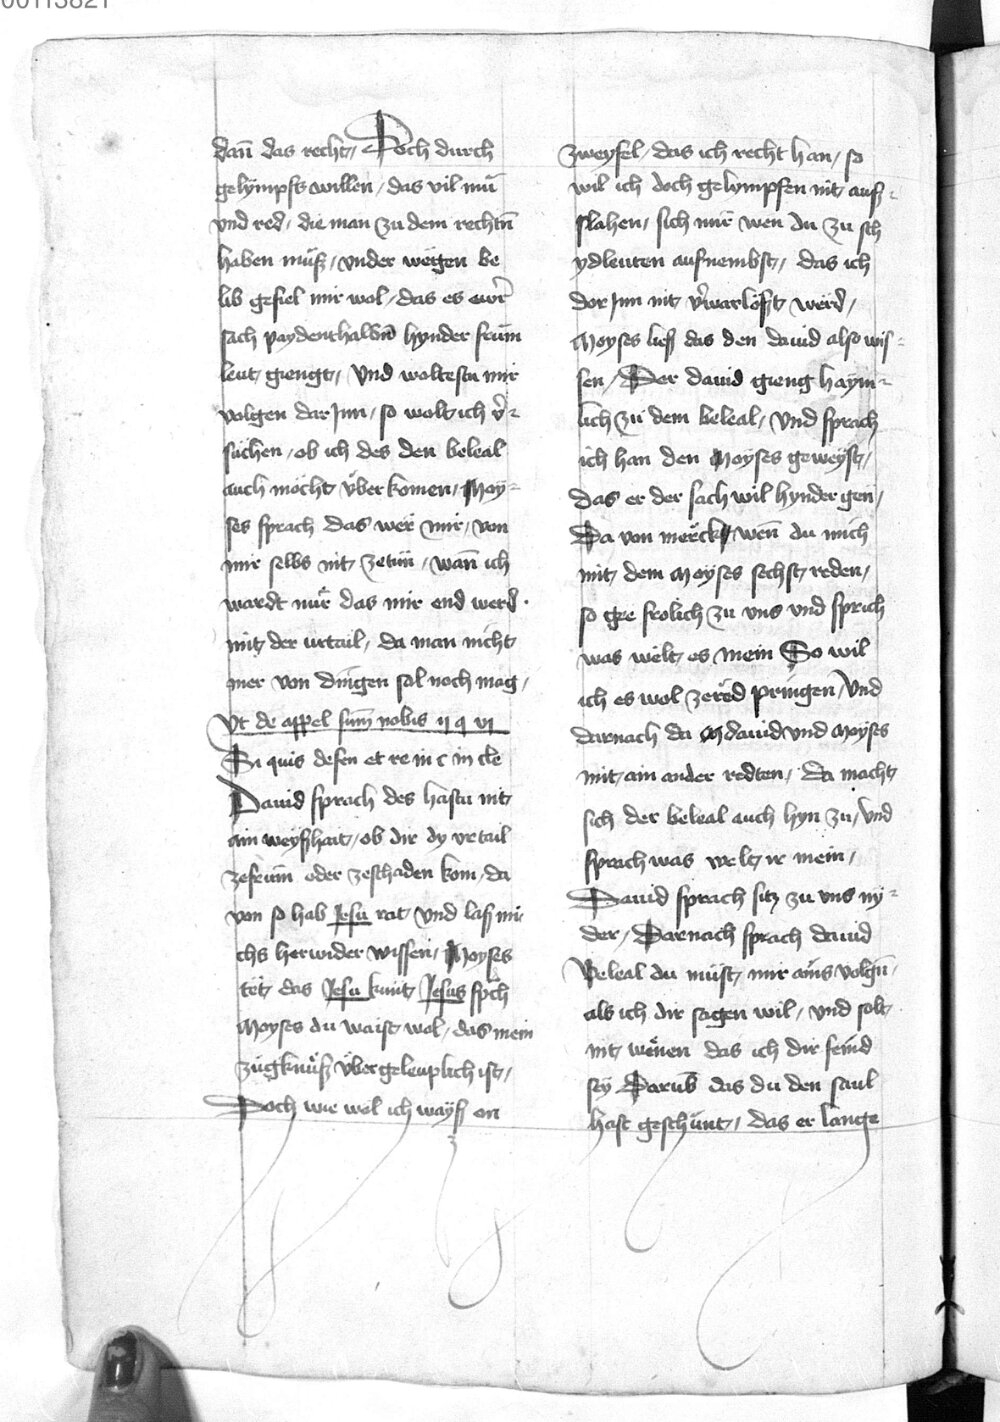 00113821
dan̄ das recht / Doch durch
gelÿmpfs willen / das vil mü
vnd red / die man zu dem rechtn̄
haben müß / vnder wëgen be
lib gefiel mir wol / das es ewr̄
sach paydenthalbn̄ hynder frum̄
leut giengt / Vnd woltestu mir
volgen dar Inn / so wolt ich v̄ˀ-
suchen / ob ich des den beleal
auch möcht über komen / Moy-
ses sprach das wër mir / von
mir selbs nit zetün / wan̄ ich
wardt nür das mir end werd
mit der vrtail / da man nicht
mer von dingen sol noch mag /
Vt de appel sum̄ nobis ij q vi
Si quis defen et re in c in cle
Dauid sprach des hastu nit
ain weyßhait / ob dir dy vrtail
zefrum̄ oder zeschaden kom / da
von so hab Jesu rat / vnd laß mi
chs herwider wissen / Moyses
tët das Jesu kunt Jesus sp̄ch
Moyses du waist wol / das mein
zügknüß übergeleuplich ist /
Doch wie wol ich wayß on
zweyfel / das ich recht han / so
wil ich doch gelympfen nit auß-
slahen / sich nur wen du zu sch
ydleuten aufnembst / das ich
dor Inn nit v̄warloßt werd /
Moyses ließ das den dauid also wis-
sen / Der dauid gieng haym-
lich zu dem beleal / Vnd sprach
ich han den Moyses geweyst /
das er der sach wil hynder gen /
Da von merck / wen̄ du mich
mit dem Moyses sechst reden /
so gee frolich zu vns vnd sprich
was welt es mein So wil
ich es wol zered pringen / Vnd
darnach da dauid vnd Moyses
mit ain ander redten / da macht
sich der beleal auch hyn zu / Vnd
sprach was welt ir mein /
Dauid sprach sitz zu vns ny-
der / Darnach sprach dauid
Beleal du müst mir ains volgn̄ /
als ich dir sagen wil / vnd solt
nit wënen das ich dir feind
sey Darub̄ das du den saul
hast geschunt / das er lange